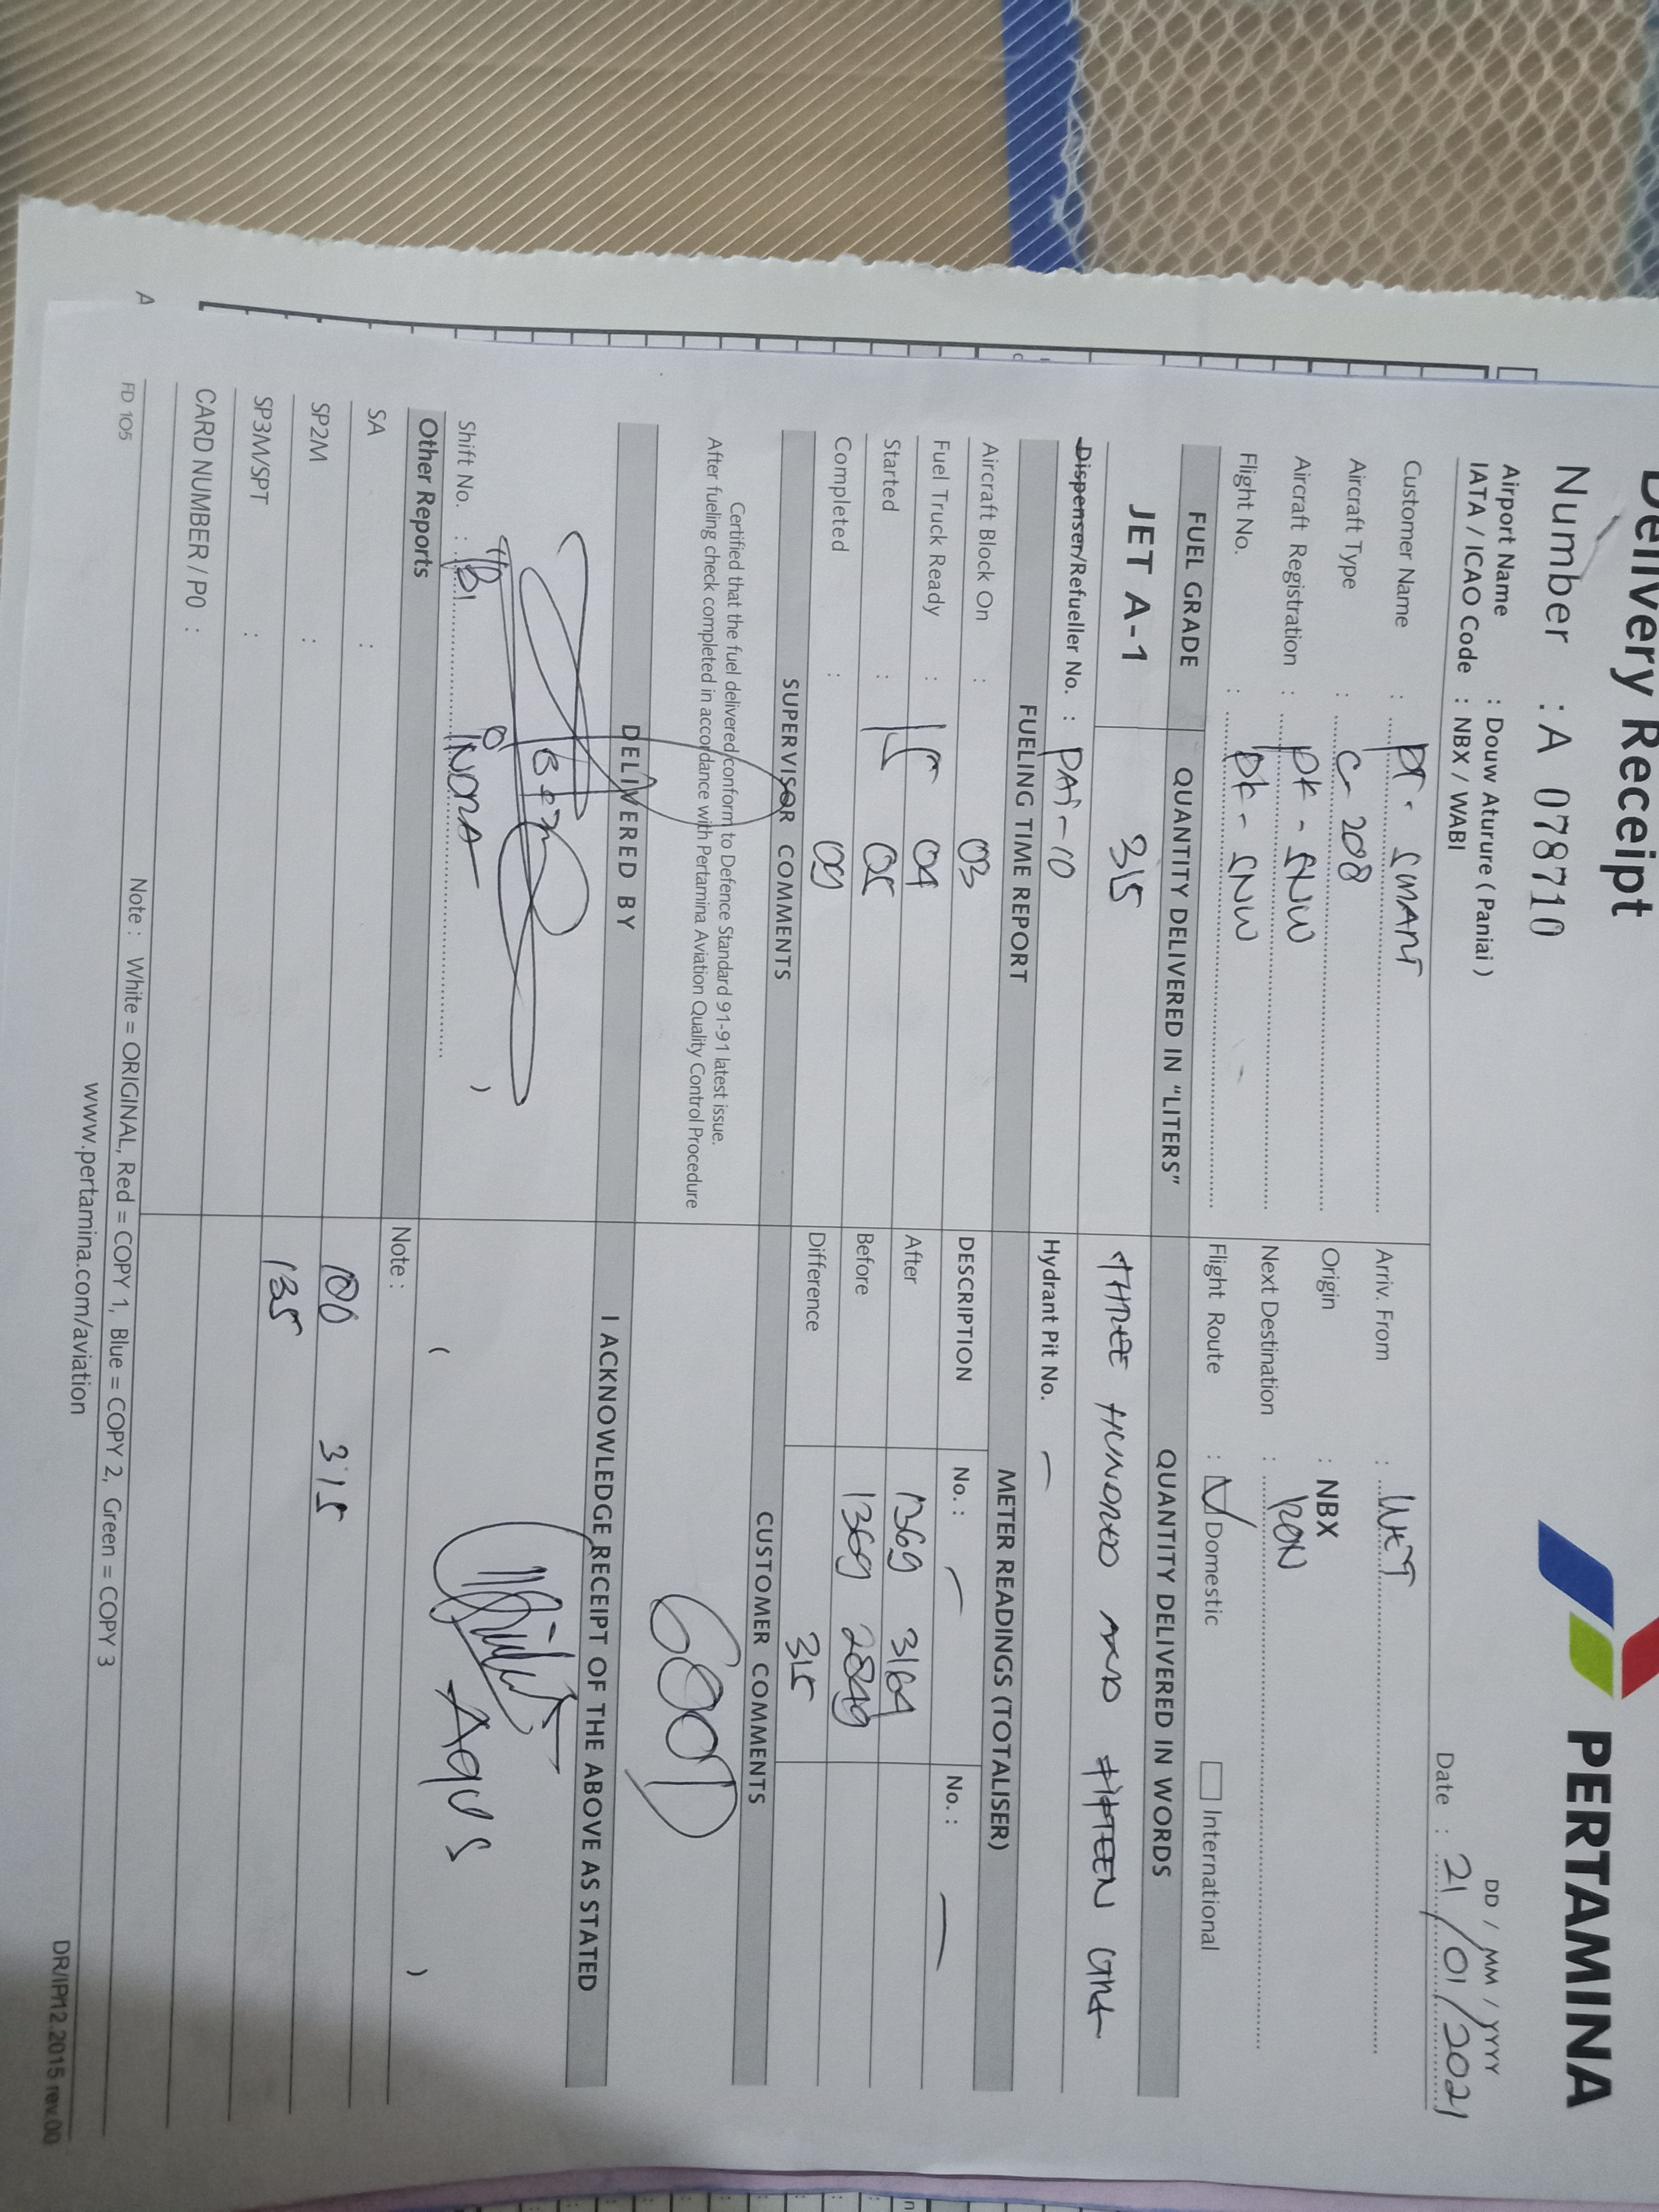 Delivery Receipt
PERTAMINA
Number : A 078710
DD / MM / YYYY
Airport Name : Douw Aturure ( Paniai )
IATA / ICAO Code : NBX / WABI
Date : 21/01/2021
Customer Name : PT. SMART
Arriv. From :
Aircraft Type : C-208
Origin : NBX
Aircraft Registration : PK-SNW
Next Destination : RON
Flight No. : PK-SNW
Flight Route : Domestic International
FUEL GRADE QUANTITY DELIVERED IN "LITERS" QUANTITY DELIVERED IN WORDS
JET A-1 315 THREE HUNDRED AND FIFTEEN
Dispenser/Refueller No. : PAI-10 Hydrant Pit No. –
FUELING TIME REPORT METER READINGS (TOTALISER)
Aircraft Block On : 03 DESCRIPTION No. : – No. : –
Fuel Truck Ready : 04 After 1369 3164
Started : 05 Before 1369 2849
Completed : 09 Difference 315
SUPERVISOR COMMENTS CUSTOMER COMMENTS
Certified that the fuel delivered conform to Defence Standard 91-91 latest issue.
After fueling check completed in accordance with Pertamina Aviation Quality Control Procedure
DELIVERED BY I ACKNOWLEDGE RECEIPT OF THE ABOVE AS STATED
Agus
Shift No. : ) ( )
Other Reports Note :
SA :
SP2M : 100 315
SP3M/SPT : 135
CARD NUMBER / PO :
Note : White = ORIGINAL, Red = COPY 1, Blue = COPY 2, Green = COPY 3
FD 105
www.pertamina.com/aviation
DR/IP/12.2015 rev.00
A